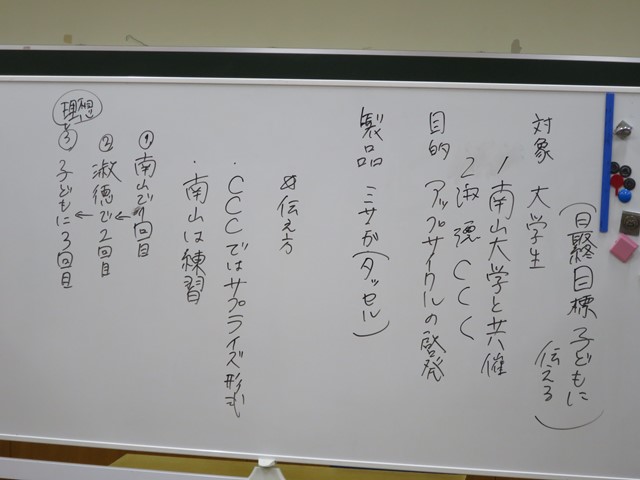 対象 大学生
(最終目標 子どもに
伝える)
1 南山大学と共催
2 淑徳 CCC
目的 アップサイクルの啓発
製品 ミサンガ(タッセル)
伝え方
・CCCではサプライズ形式
・南山は練習
① 南山で1回目
② 淑徳で2回目
理想
③ 子どもに3回目